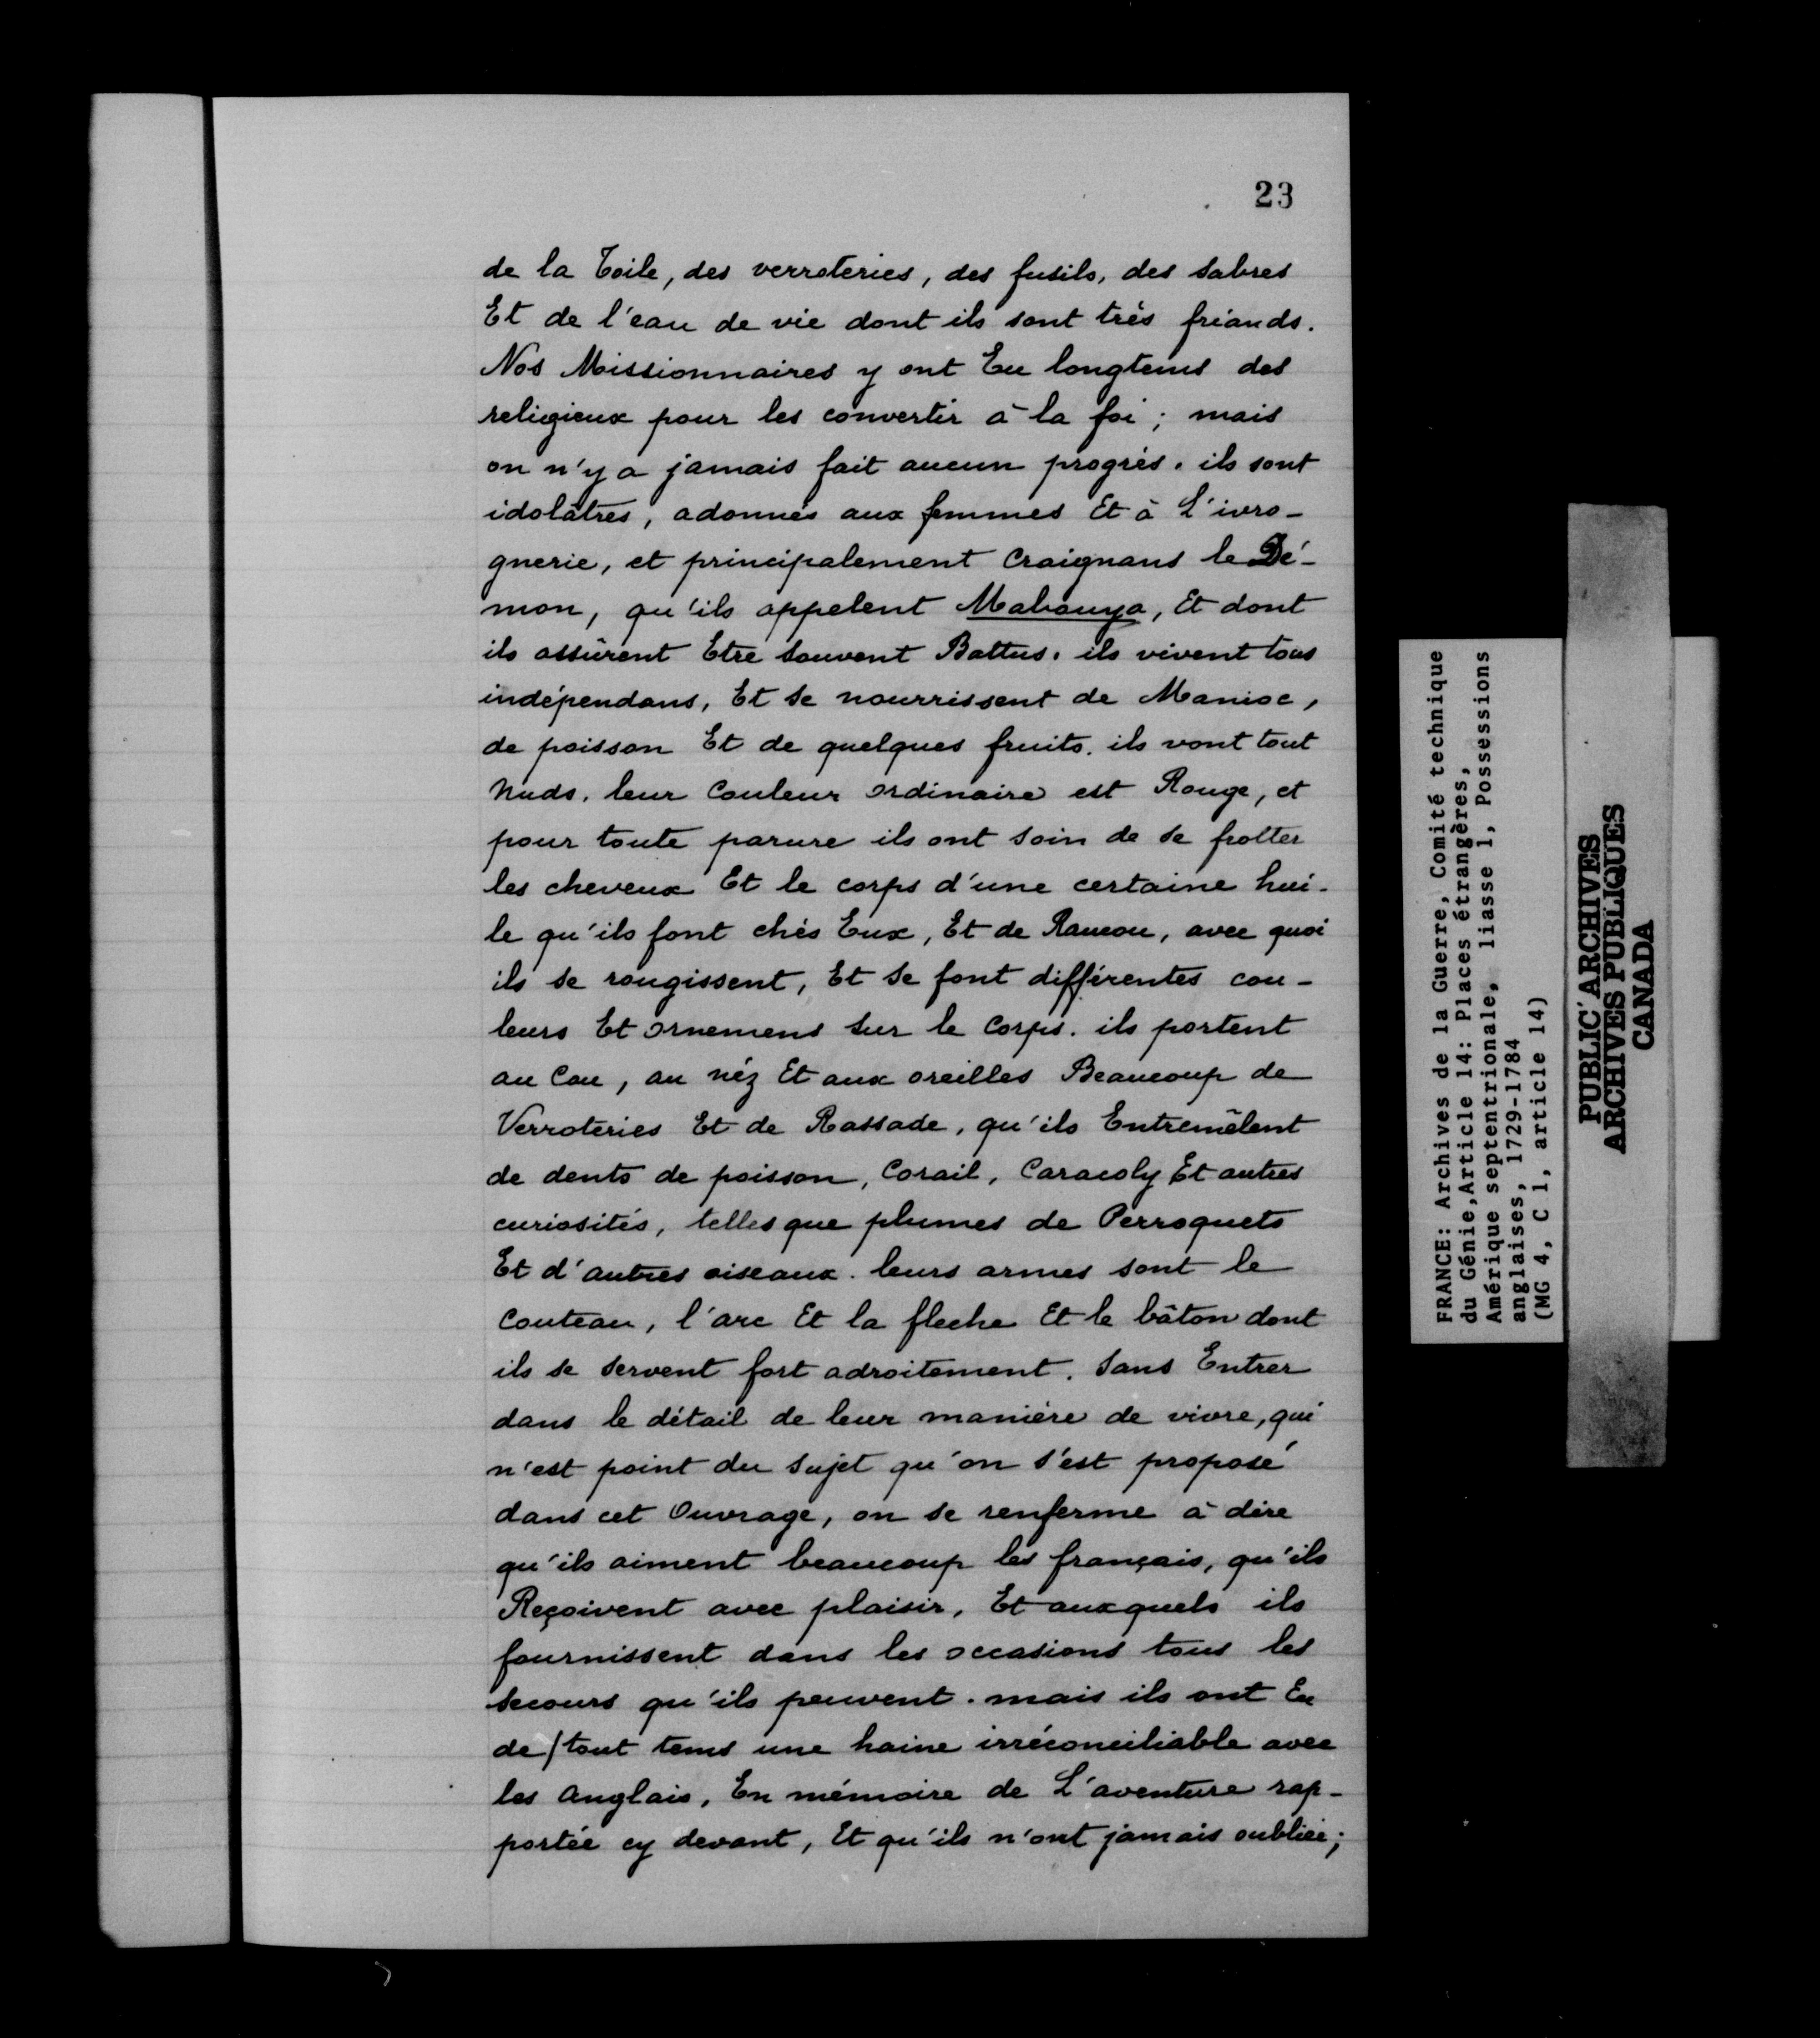 23
de la Toile, des verroteries, des fusils, des sabres
Et de l'eau de vie dont ils sont très friands.
Nos Missionnaires y ont Eu longtems des
religieux pour les convertir à la foi ; mais
on n'y a jamais fait aucun progrès. ils sont
idolâtres, adonnés aux femmes Et à L'ivro-
gnerie, et principalement Craignans le Dé-
mon, qu'ils appelent Mabouya, Et dont
ils assûrent Etre souvent Battus. ils vivent tous
indépendans, Et se nourrissent de Manioc,
de poisson Et de quelques fruits. ils vont tout
Nuds. leur Couleur ordinaire est Rouge, et
pour toute parure ils ont soin de se frotter
les cheveux Et le corps d'une certaine hui-
le qu'ils font chés Eux, Et de Raucou, avec quoi
ils se rougissent, Et se font différentes cou-
leurs Et ornemens sur le Corps. ils portent
au Cou, au néz Et aux oreilles Beaucoup de
Verroteries Et de Rassade, qu'ils Entremêlent
de dents de poisson, Corail, Caracoly Et autres
curiosités, telles que plumes de Perroquets
Et d'autres oiseaux. leurs armes sont le
Couteau, l'arc Et la fleche Et le bâton dont
ils se servent fort adroitement. sans Entrer
dans le détail de leur manière de vivre, qui
n'est point du sujet qu'on s'est proposé
dans cet Ouvrage, on se renferme à dire
qu'ils aiment beaucoup les français, qu'ils
Reçoivent avec plaisir, Et auxquels ils
fournissent dans les occasions tous les
secours qu'ils peuvent. mais ils ont Eu
de/tout tems une haine irréconciliable avec
les Anglais, En mémoire de L'aventure rap-
portée cy devant, Et qu'ils n'ont jamais oubliée;
FRANCE: Archives de la Guerre, Comité technique
du Génie,Article 14: Places étrangères,
Amérique septentrionale, liasse 1, Possessions
anglaises, 1729-1784
(MG 4, C 1, article 14)
PUBLIC ARCHIVES
ARCHIVES PUBLIQUES
CANADA